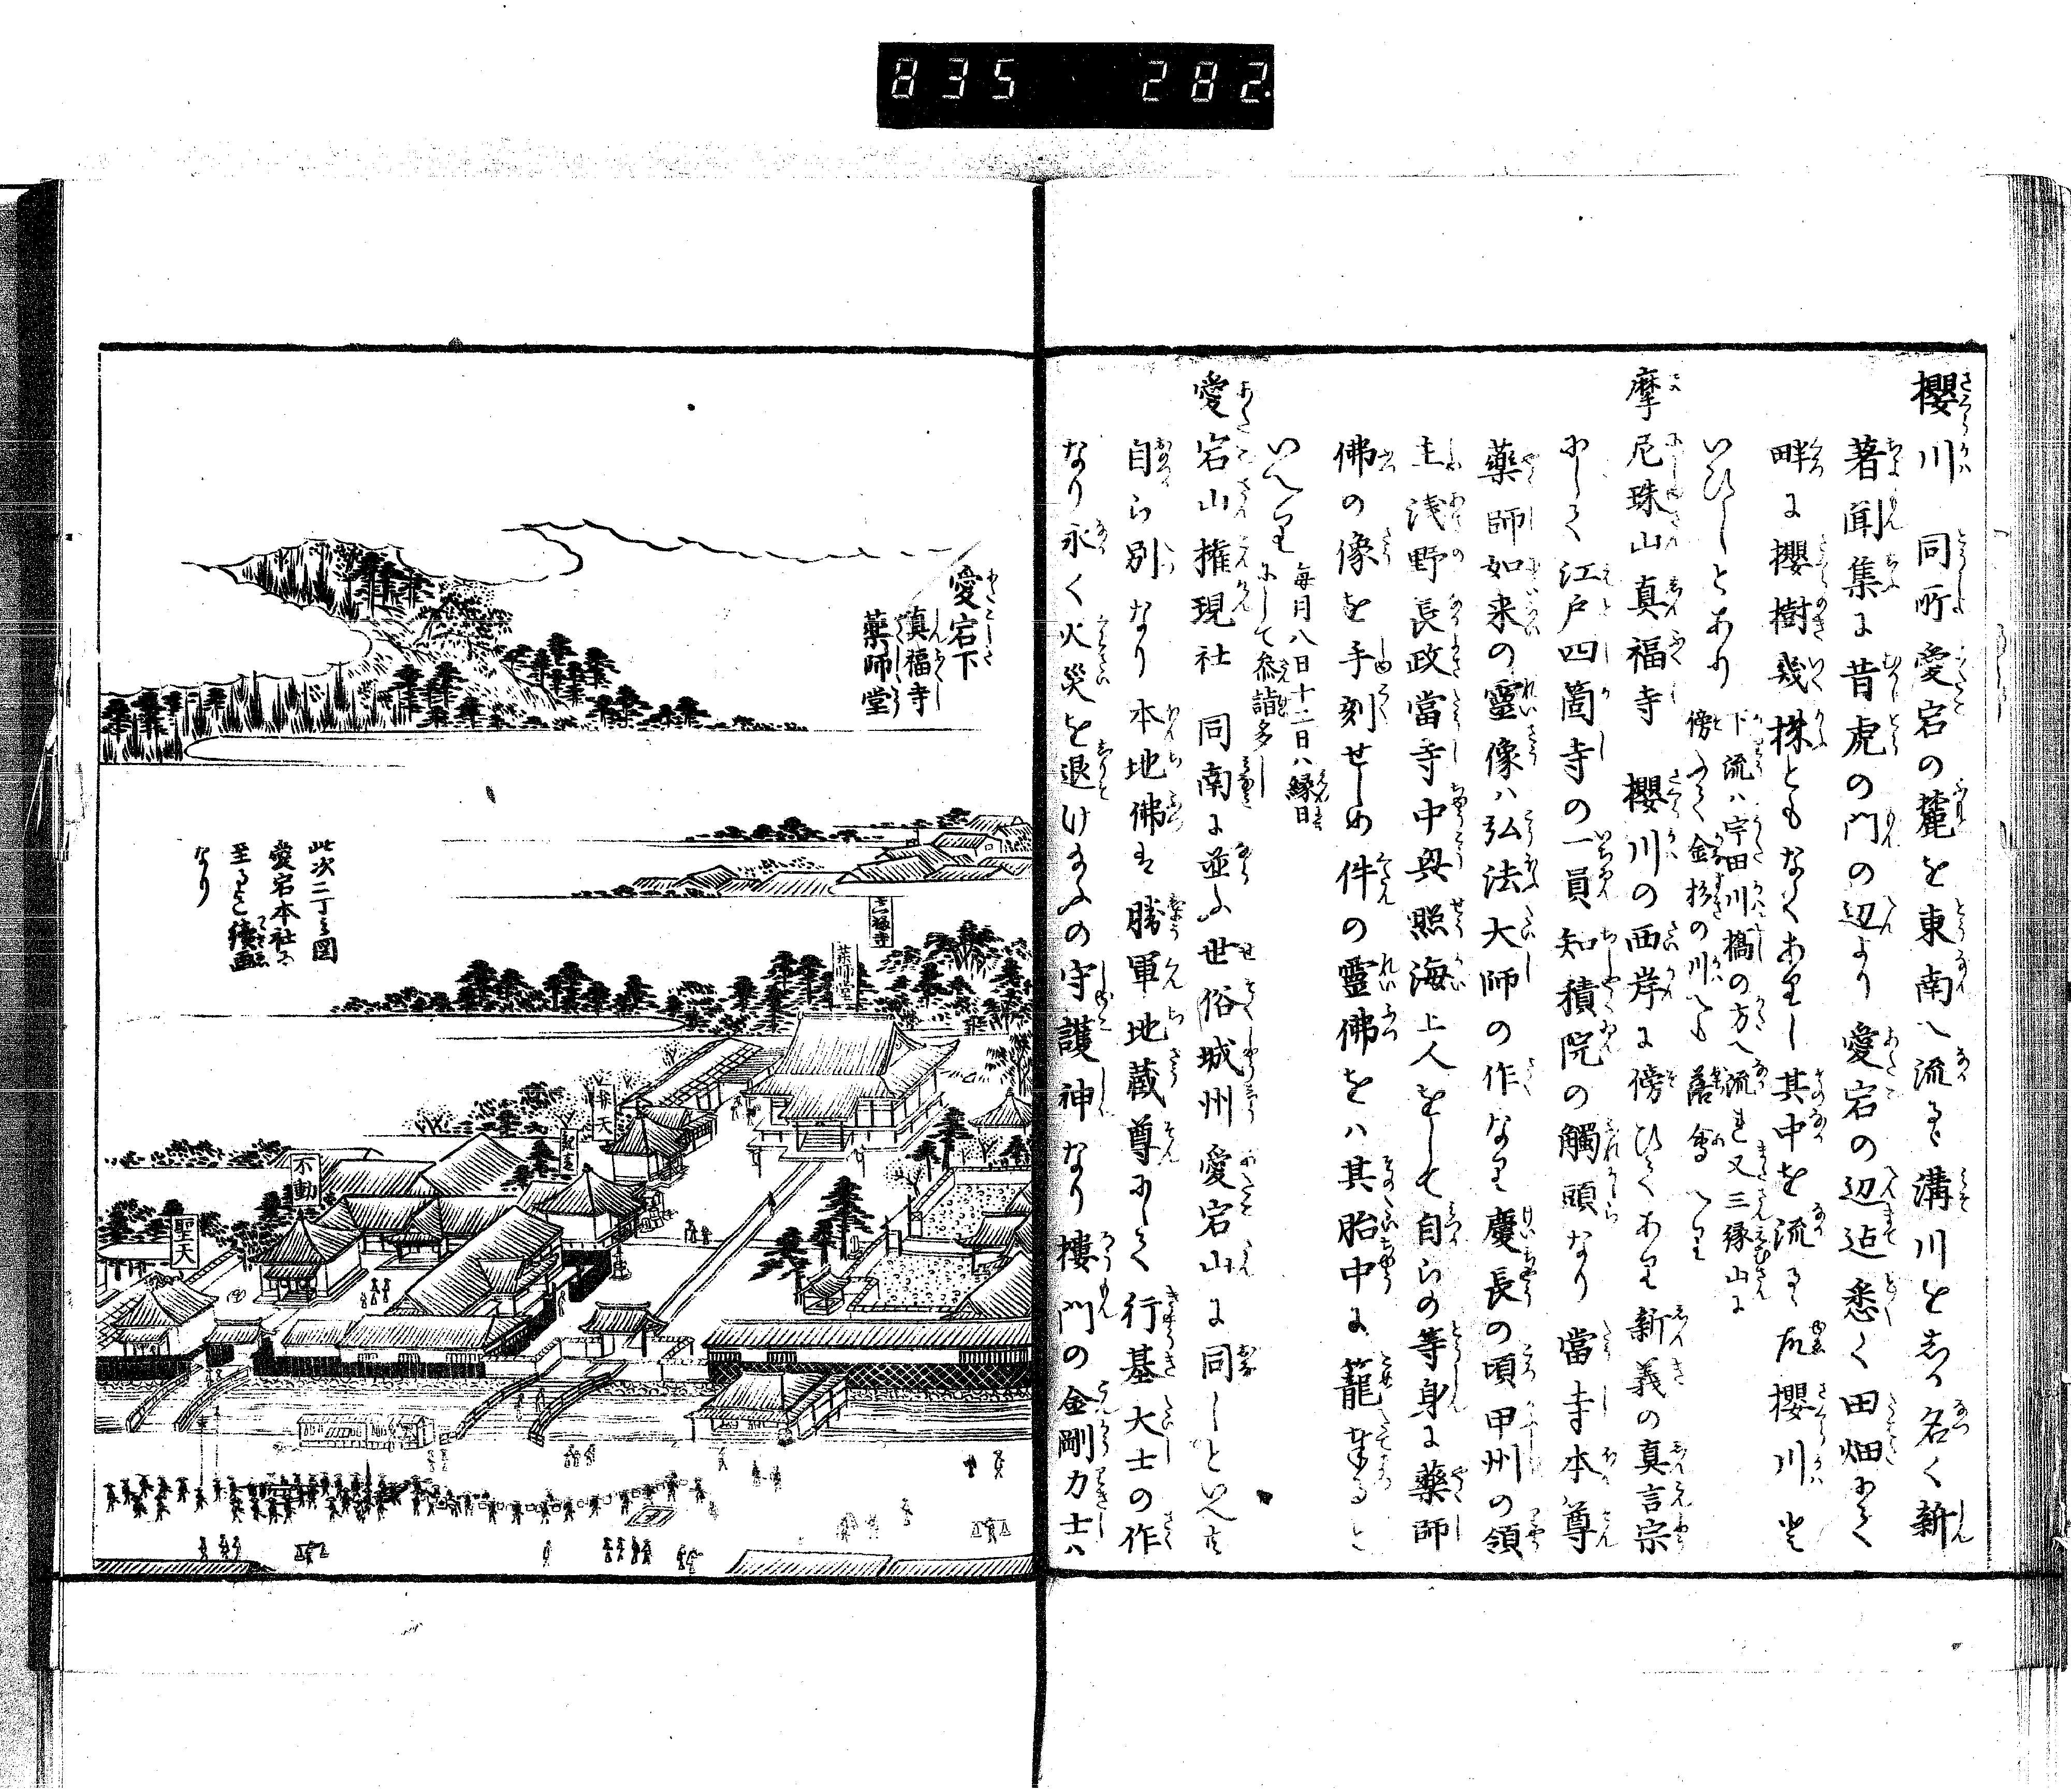 835 282
櫻川 同所愛宕の麓を東南へ流るゝ溝川を志か名く新
著聞集に昔虎の門の辺より愛宕の辺迠悉く田畑にて
畔に櫻樹幾株ともなくありし其中を流るゝ故櫻川と
いひしとあり
下流ハ宇田川橋の方へ流れ又三縁山に
傍ふて金杉の川へも落会へり
摩尼珠山真福寺 櫻川の西岸に傍ひてあり新義の真言宗
にして江戸四箇寺の一員知積院の觸頭なり當寺本尊
藥師如来の靈像ハ弘法大師の作なり慶長の頃甲州の領
主浅野長政當寺中興照海上人をして自らの等身に藥師
佛の像を手刻せしめ件の靈佛をハ其胎中に籠奉ると
いへり
毎月八日十二日ハ縁日
にして参詣多し
愛宕山権現社 同南に並ふ世俗城州愛宕山に同しといへ共
自ら別なり本地佛は勝軍地蔵尊にして行基大士の作
なり永く火災を退け給ふの守護神なり樓門の金剛力士ハ
愛宕下
真福寺
薬師堂
此次二丁の図
愛宕本社に
至るまて續画
なり
薬師堂
弁天
不動
聖天